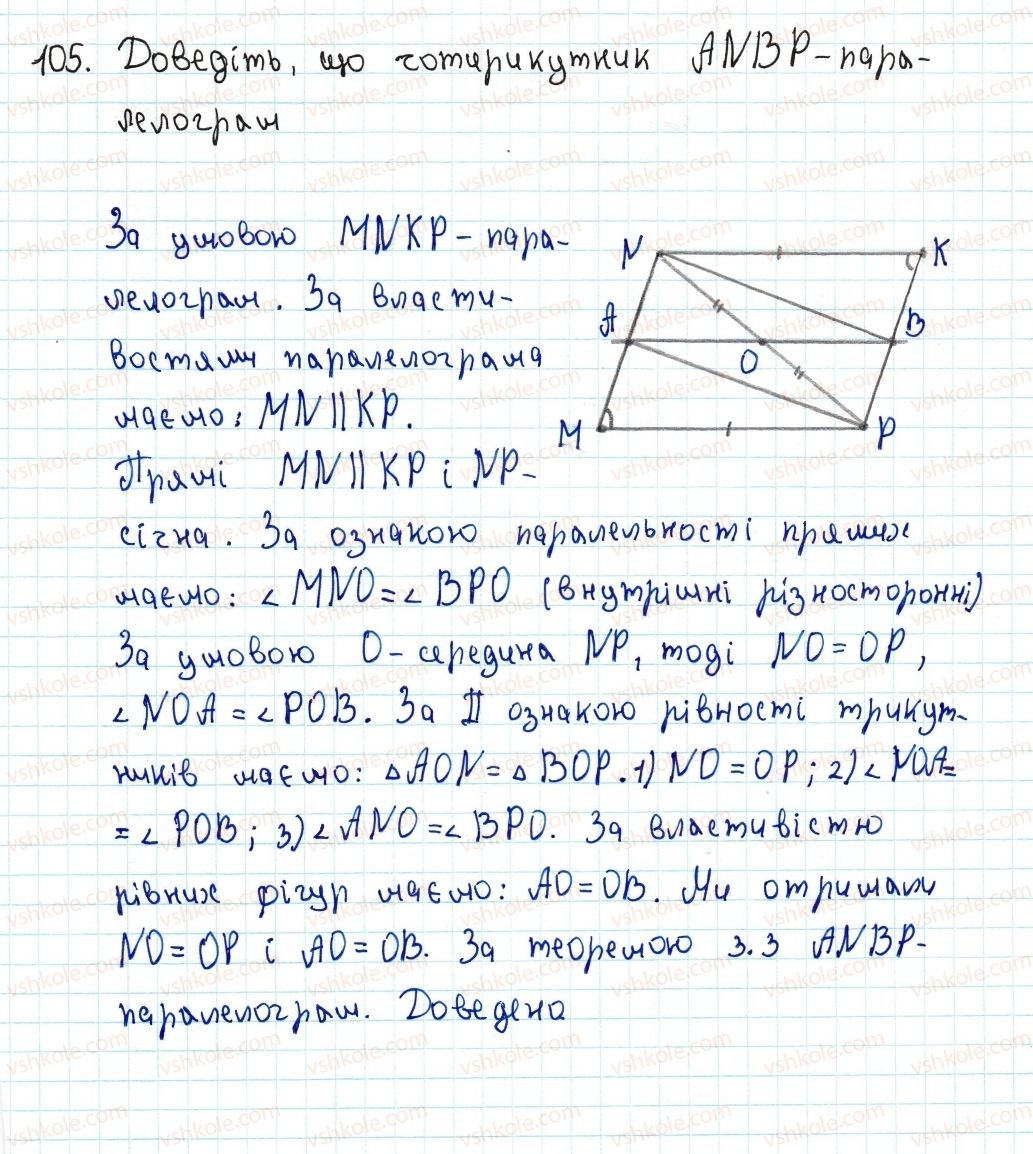 105. Доведіть, що чотирикутник ANBP - пара-
лелограм
За умовою MNKP - пара-
лелограм. За власти-
востями паралелограма
маємо: MN || KP.
Прямі MN || KP і NP -
січна. За ознакою паралельності прямих
маємо: ∠MNO = ∠BPO (внутрішні різносторонні)
За умовою O - середина NP, тоді NO = OP,
∠NOA = ∠POB. За II ознакою рівності трикут-
ників маємо: △AON = △BOP. 1) NO = OP; 2) ∠NOA =
= ∠POB; 3) ∠ANO = ∠BPO. За властивістю
рівних фігур маємо: AO = OB. Ми отримали
NO = OP і AO = OB. За теоремою 3.3 ANBP -
паралелограм. Доведено
N K
A B
O
M P
vshkole.com